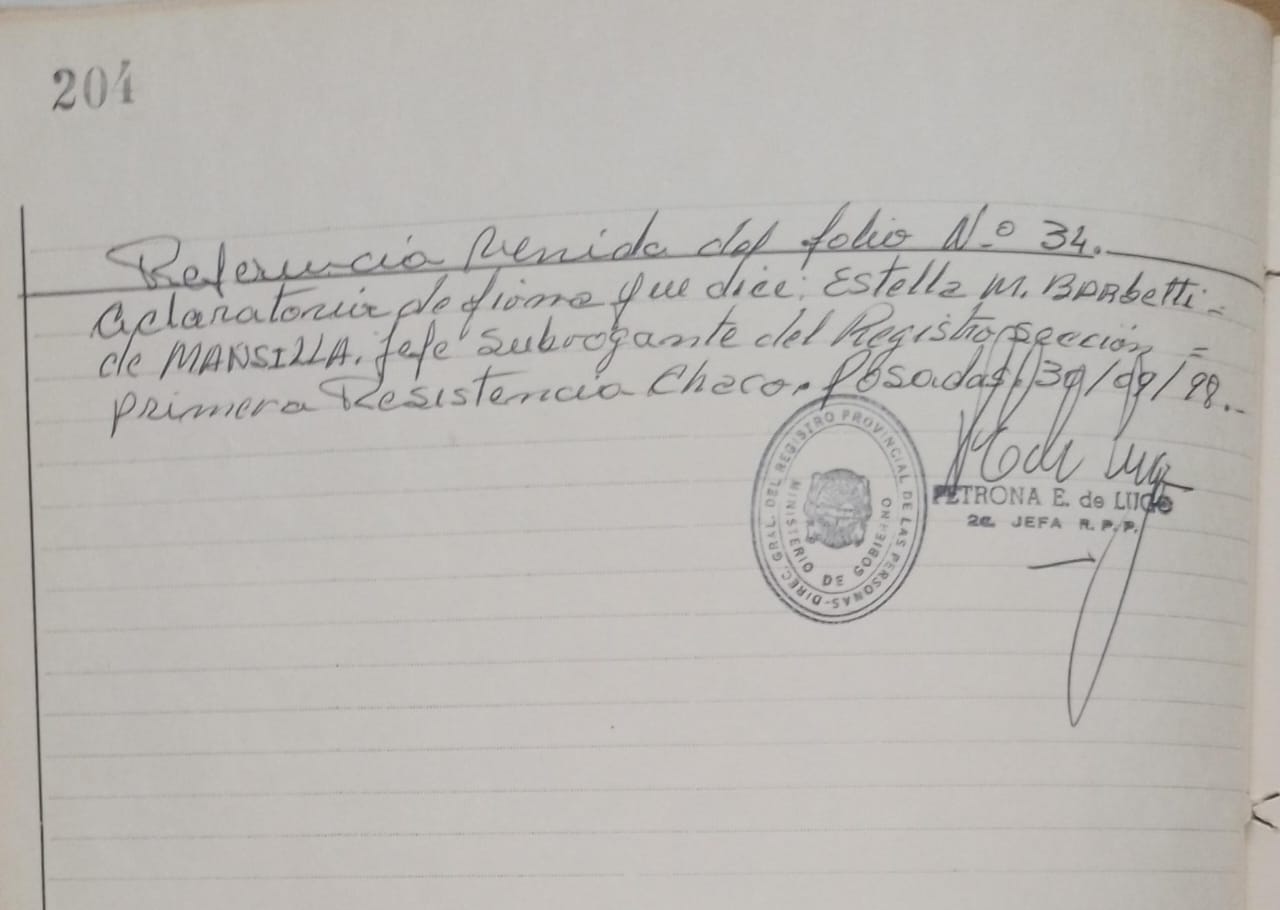 204
Referencia Venida del folio N.º 34.
aclaratoria de firma que dice: Estella M. BARbetti =
de MANSILLA. Jefe Subrogante del Registro sección =
primera Resistencia Chaco. Posadas, 30/09/98.-
DIREC. GRAL. DEL REGISTRO PROVINCIAL DE LAS PERSONAS-
MINISTERIO DE GOBIERNO
PETRONA E. de LUGO
2ª JEFA R.P.P.